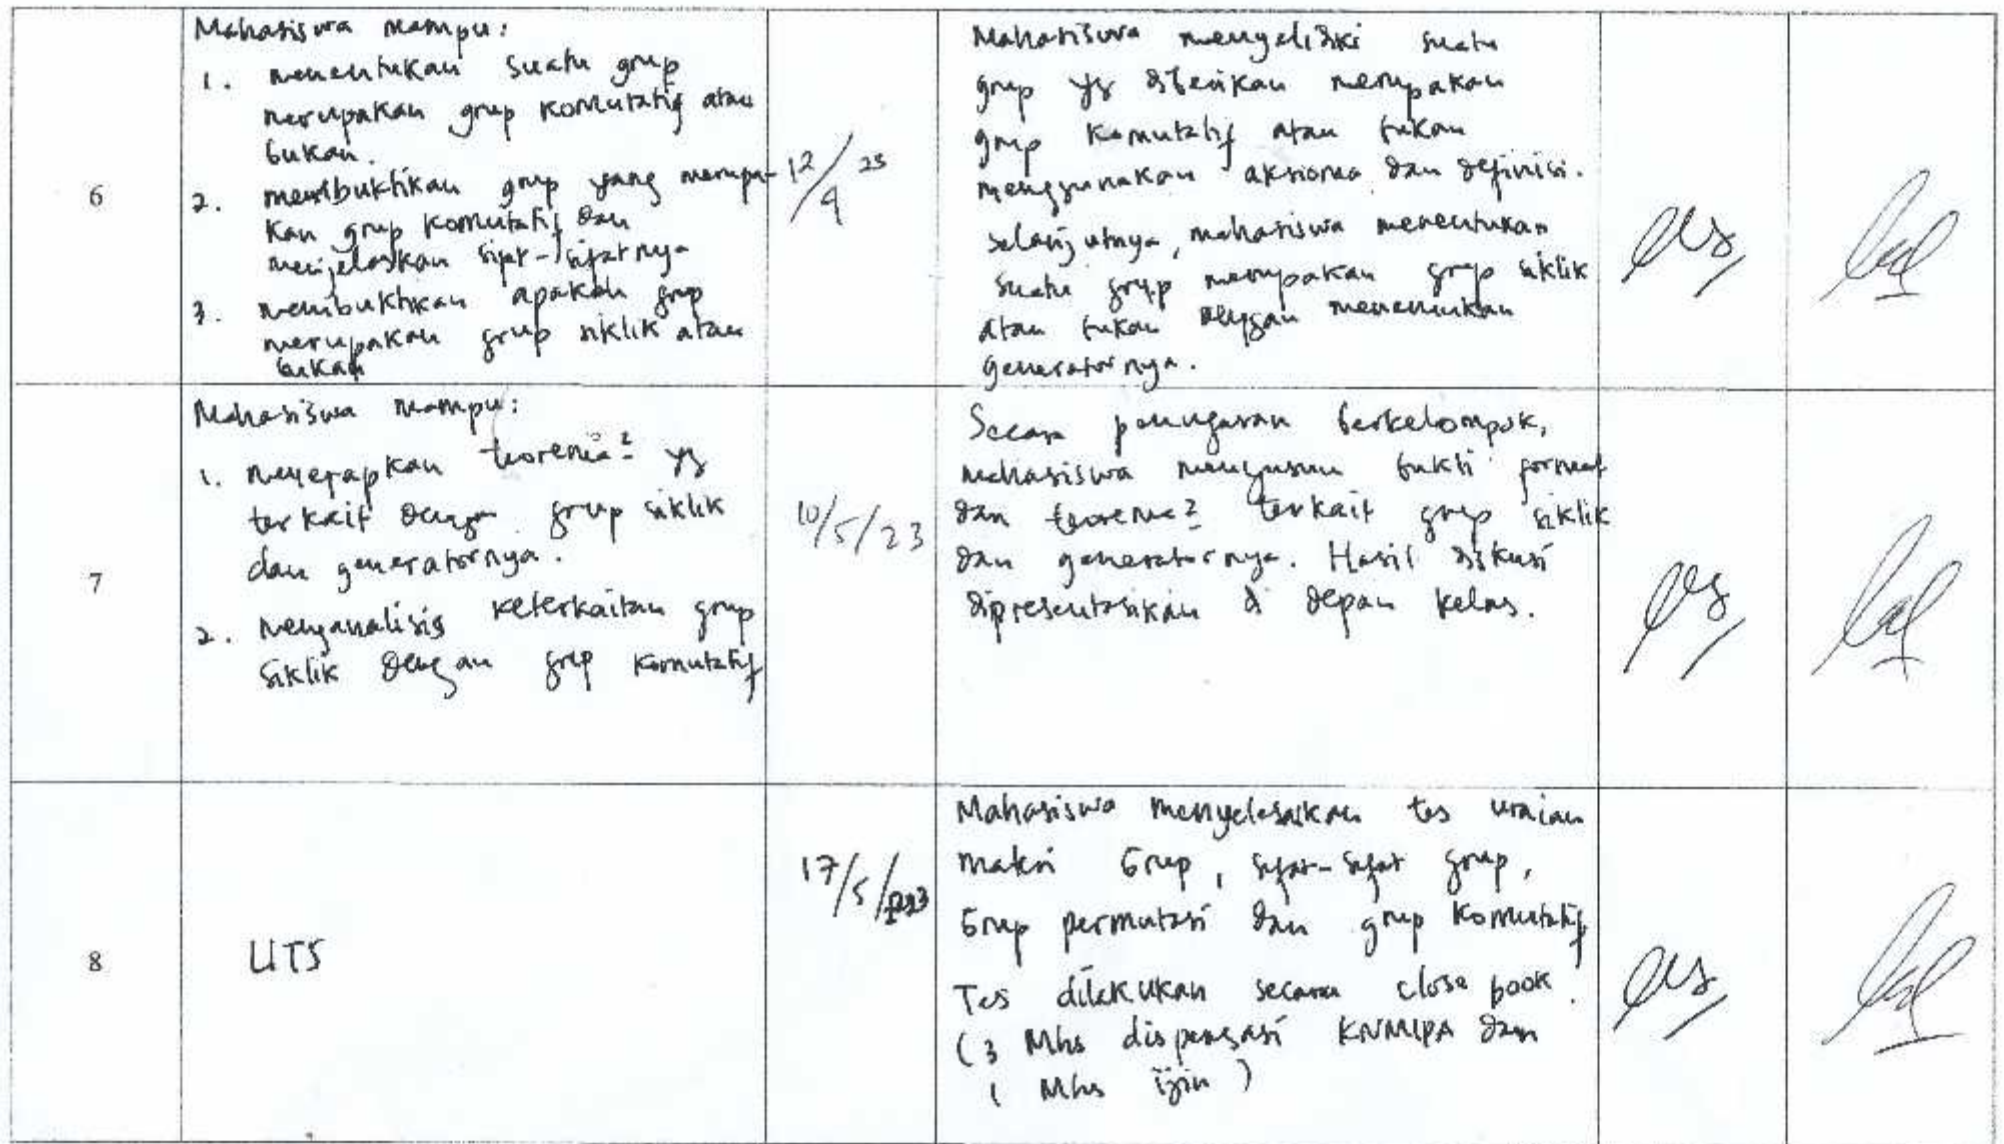 6
Mahasiswa mampu:
1. menentukan suatu grup
merupakan grup komutatif atau
bukan.
2. membuktikan grup yang merupa-
kan grup komutatif dan
menjelaskan sifat-sifatnya
3. membuktikan apakah grup
merupakan grup siklik atau
bukan
12/4 23
Mahasiswa menyelidiki suatu
grup yg diberikan merupakan
grup komutatif atau bukan
menggunakan aksioma dan definisi.
Selanjutnya, mahasiswa menentukan
suatu grup merupakan grup siklik
atau bukan dengan menemukan
generatornya.
7
Mahasiswa mampu:
1. menerapkan teorema2 yg
terkait dengan grup siklik
dan generatornya.
2. Menganalisis keterkaitan grup
siklik dengan grup komutatif
10/5/23
Secara penugasan berkelompok,
mahasiswa menyusun bukti formal
dan teorema2 terkait grup siklik
dan generatornya. Hasil diskusi
dipresentasikan di depan kelas.
8
UTS
17/5/
Mahasiswa menyelesaikan tes uraian
materi Grup, sifat-sifat grup,
Grup permutasi dan grup komutatif
Tes dilakukan secara close book.
(3 Mhs dispensasi KNMIPA dan
1 Mhs ijin)